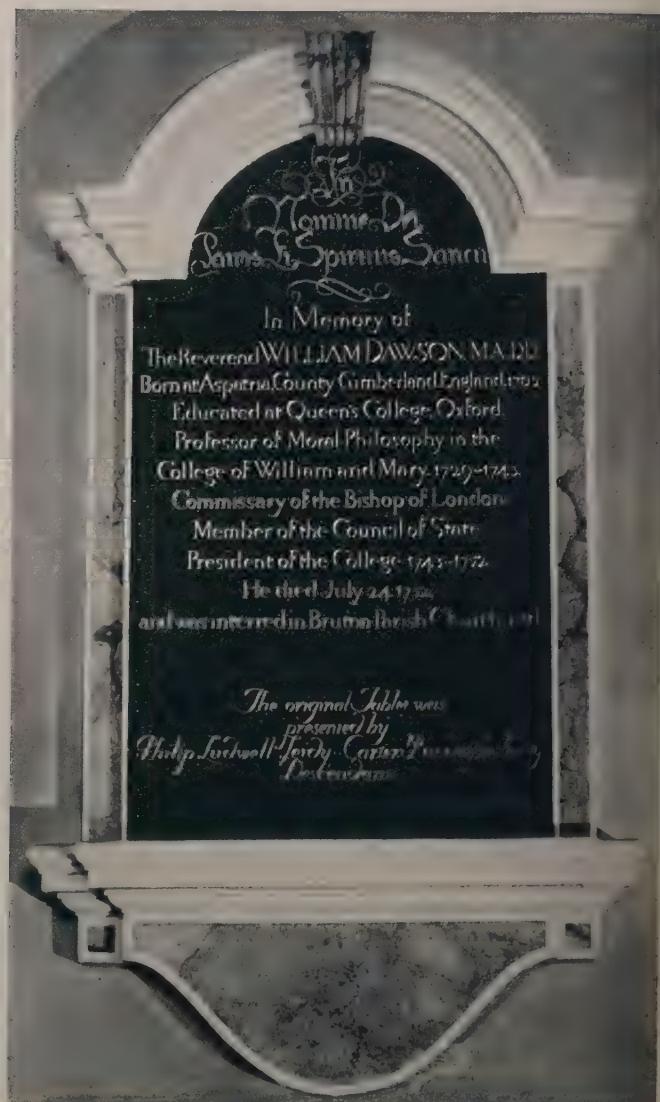 In
Nomine Dei
Patris Et Spiritus Sancti
In Memory of
The Reverend WILLIAM DAWSON, M.A. D.D.
Born at Aspatria, County Cumberland, England, 1705
Educated at Queen's College, Oxford
Professor of Moral Philosophy in the
College of William and Mary, 1729-1743
Commissary of the Bishop of London
Member of the Council of State
President of the College 1743-1752
He died July 24, 1752
and was interred in Bruton Parish Churchyard
The original Tablet was
presented by
Philip Ludwell
Descendants